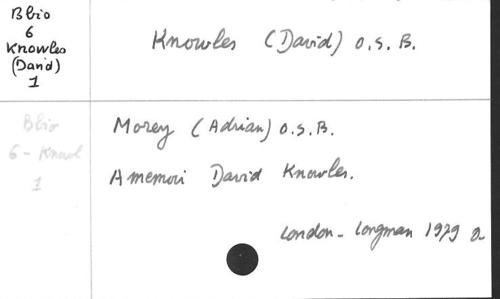 Bbio
6
Knowles
(David)
1
Knowles (David) O.S.B.
Bbio
6 - Knowl
1
Morey (Adrian) O.S.B.
A memoir David Knowles.
London - Longman 1979